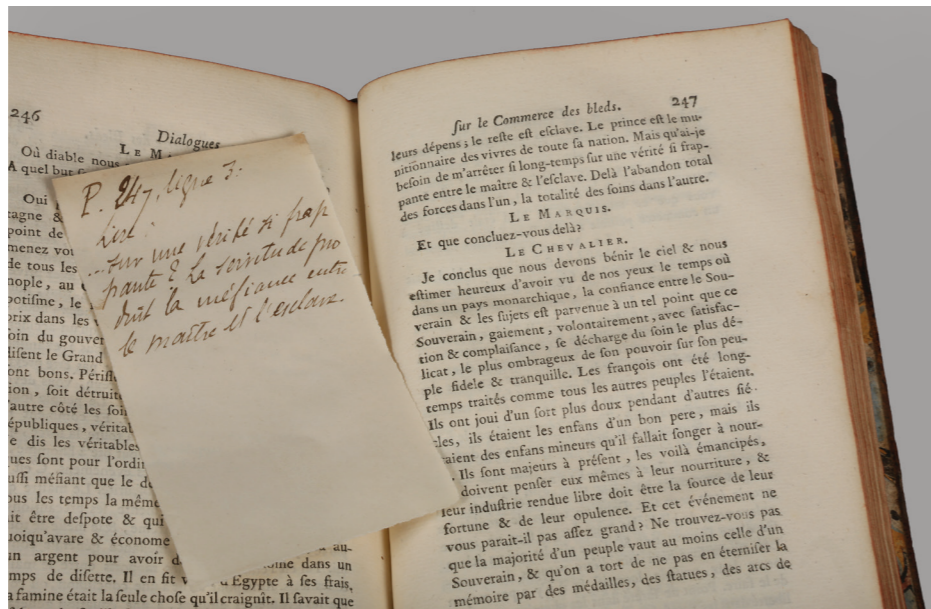 246
Dialogues
LE
Où diable nous
A quel but
Oui
tagne &
point de
menez vou
de tous les
nople, au
potiſme, le
prix dans les
ſoin du gouver
diſent le Grand
ſont bons. Périſſ
ion, ſoit détruit
l'autre côté les ſoi
épubliques, vérita
e dis les véritables
ques ſont pour l'ordi
uſſi méfiant que le
ous les temps la même
ait être deſpote & qui
uoiqu'avare & économe au-
un argent pour avoir dans un
mps de diſette. Il en fit d'Egypte à ſes frais,
a famine était la ſeule choſe qu'il craignît. Il ſavait que
P. 247, ligne 3.
Lire:
...ſur une vérité ſi frap
pante? La ſervitude pro
duit la méfiance entre
le maître et l'esclave.
ſur le Commerce des bleds. 247
leurs dépens ; le reſte eſt eſclave. Le prince eſt le mu-
nitionnaire des vivres de toute ſa nation. Mais qu'ai-je
beſoin de m'arrêter ſi long-temps ſur une vérité ſi frap-
pante entre le maître & l'eſclave. Delà l'abandon total
des forces dans l'un, la totalité des ſoins dans l'autre.
LE MARQUIS.
Et que concluez-vous delà?
LE CHEVALIER.
Je conclus que nous devons bénir le ciel & nous
eſtimer heureux d'avoir vu de nos yeux le temps où
dans un pays monarchique, la confiance entre le Sou-
verain & les ſujets eſt parvenue à un tel point que ce
Souverain, gaiement, volontairement, avec ſatisfac-
tion & complaiſance, ſe décharge du ſoin le plus dé-
licat, le plus ombrageux de ſon pouvoir ſur ſon peu-
ple fidele & tranquille. Les françois ont été long-
temps traités comme tous les autres peuples l'étaient.
Ils ont joui d'un ſort plus doux pendant d'autres ſié-
cles, ils étaient les enfans d'un bon pere, mais ils
aient des enfans mineurs qu'il fallait ſonger à nour-
Ils ſont majeurs à préſent, les voilà émancipés,
doivent penſer eux mêmes à leur nourriture, &
leur induſtrie rendue libre doit être la ſource de leur
fortune & de leur opulence. Et cet événement ne
vous parait-il pas aſſez grand? Ne trouvez-vous pas
que la majorité d'un peuple vaut au moins celle d'un
Souverain, & qu'on a tort de ne pas en éterniſer la
mémoire par des médailles, des ſtatues, des arcs de